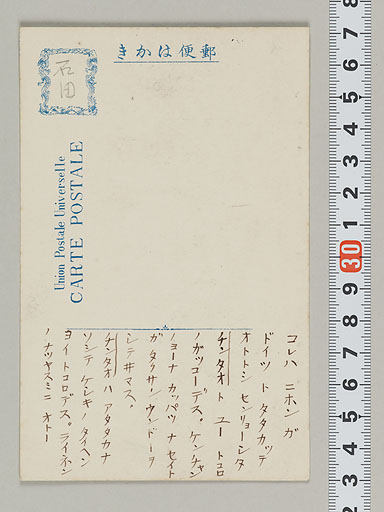 郵便はかき
石田
Union Postale Universelle
CARTE POSTALE
コレハ ニホンガ
ドイツ ト タタカッテ
オトトシ センリョーシタ
チンタオ ト ユー トコロ
ノガッコーデス。ケンチャン
ノヨーナ カッパツ ナ セイト
ガ タクサン ウンドーヲ
シテ井マス。
チンタオハ アタタカナ
ソシテ ケシキノ タイヘン
ヨイトコロデス。ライネン
ノナツヤスミニ オトー
8
7
6
5
4
3
2
1
30
9
8
7
6
5
4
3
2